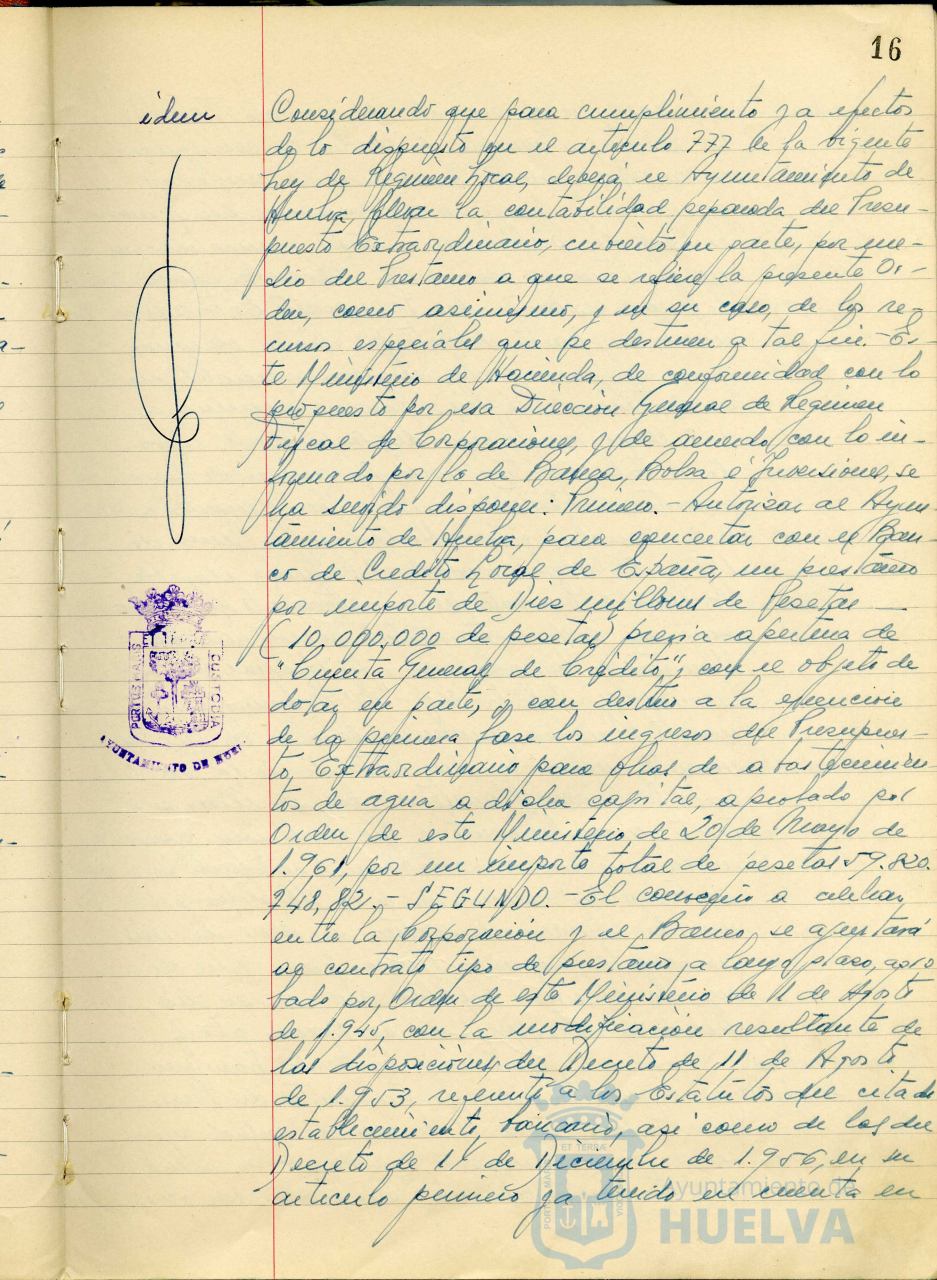 16
idem
Considerando que para cumplimiento y a efectos
de lo dispuesto en el artículo 777 de la vigente
Ley de Régimen Local, deberá el Ayuntamiento de
Huelva, llevar la contabilidad separada del Presu-
puesto Extraordinario, cubierto en parte, por me-
dio del Prestamo a que se refiere la presente Or-
den, como asimismo, y en su caso, de los re-
cursos especiales que se destinen a tal fin.- Es-
te Ministerio de Hacienda, de conformidad con lo
propuesto por esa Dirección General de Regimen
Fiscal de Corporaciones, y de acuerdo con lo in-
formado por la de Banca, Bolsa e Inversiones, se
ha servido disponer: Primero.- Autorizar al Ayun-
tamiento de Huelva, para concertar con el Ban-
co de Crédito Local de España, un prestamo
por importe de Diez millones de Pesetas
(10.000.000 de pesetas) previa apertura de
"Cuenta General de Crédito", con el objeto de
dotar en parte, y con destino a la ejecución
de la primera fase los ingresos del Presupues-
to, Extraordinario para obras de abastecimien
tos de agua a dicha capital, aprobado por
Orden de este Ministerio, de 20 de Mayo de
1.961, por un importe total de pesetas 59.820.
748,82.- SEGUNDO.- El convenio a celebrar
entre la Corporación y el Banco, se ajustará
al contrato tipo de prestamo, a largo plazo, apro
bado por, Orden de este Ministerio de 11 de Agosto
de 1.945, con la modificación resultante de
las disposiciones del Decreto de 11 de Agosto
de 1.953, referente a los Estatutos del citado
establecimiento bancario, asi como de las del
Decreto de 14 de Diciembre de 1.956, en su
articulo primero ya tenido en cuenta en
PORTUS MARIS
ET TERRAE
CUSTODIA
AYUNTAMIENTO DE HUEL
Ayuntamiento de
HUELVA